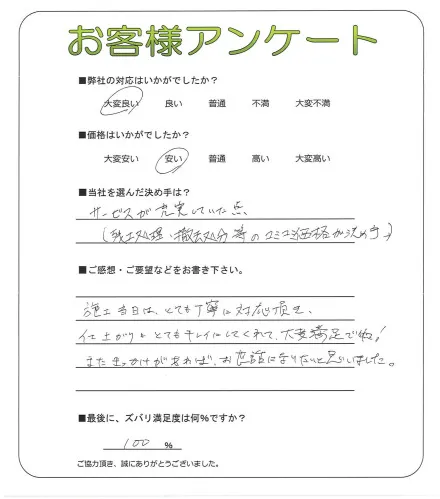 お客様アンケート
■弊社の対応はいかがでしたか?
大変良い 良い 普通 不満 大変不満
■価格はいかがでしたか?
大変安い 安い 普通 高い 大変高い
■当社を選んだ決め手は?
サービスが充実していた点
(残土処理・撤去処分等のコミコミ価格が決め手)
■ご感想・ご要望などをお書き下さい。
施工当日は、とても丁寧に対応頂き、
仕上がりもとてもキレイにしてくれて、大変満足ですね!
またきっかけがあれば、お世話になりたいと思いました。
■最後に、ズバリ満足度は何%ですか?
100 %
ご協力頂き、誠にありがとうございました。